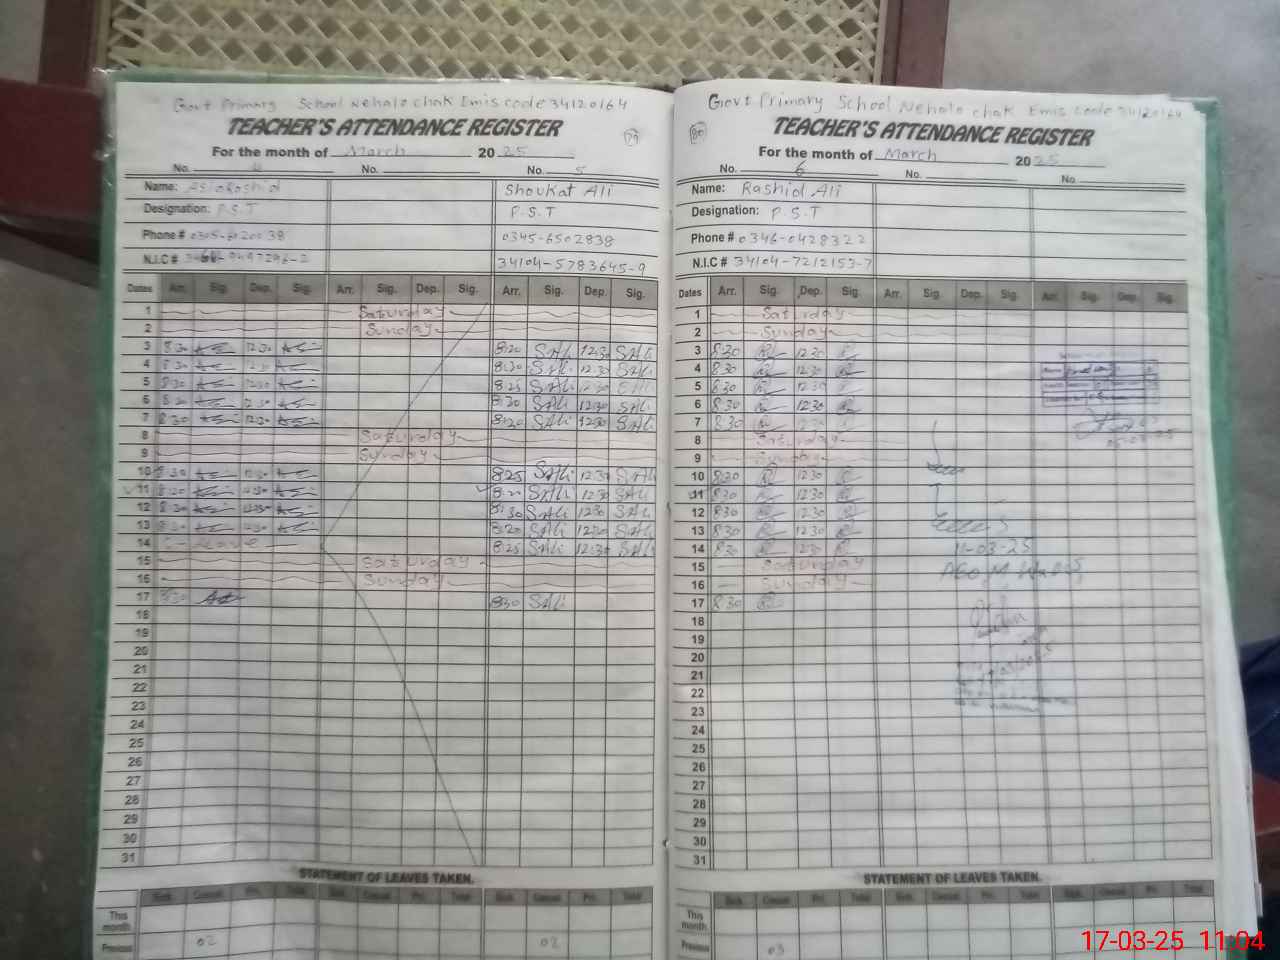 Govt Primary School Nehala chak Emis code 34120164
TEACHER'S ATTENDANCE REGISTER
79
For the month of March 2025
No. 4 No. No. 5
Name: Shoukat Ali
Designation: P.S.T P.S.T
Phone # 0345-6502838
N.I.C # 34104-5783645-9
Dates Arr. Sig. Dep. Sig. Arr. Sig. Dep. Sig. Arr. Sig. Dep. Sig.
1 Saturday
2 Sunday
3 8:30 12:30 8:20 SAli 12:30 SAli
4 8:30 12:30 8:20 SAli 12:30 SAli
5 8:30 12:30 8:25 SAli 12:30 SAli
6 8:30 12:30 8:20 SAli 12:30 SAli
7 8:30 12:30 8:20 SAli 12:30 SAli
8 Saturday
9 Sunday
10 8:30 12:30 8:25 SAli 12:30 SAli
11 8:20 12:30 SAli 12:30 SAli
12 8:30 12:30 8:30 SAli 12:30 SAli
13 8:30 12:30 8:20 SAli 12:30 SAli
14 C-Leave 8:25 SAli 12:30 SAli
15 Saturday
16 Sunday
17 8:30 8:30 SAli
18
19
20
21
22
23
24
25
26
27
28
29
30
31
STATEMENT OF LEAVES TAKEN.
Sick Casual Pri. Total Sick Casual Pri. Total Sick Casual Pri. Total
This month
Previous 02 02
Govt Primary School Nehala chak Emis code 34120164
TEACHER'S ATTENDANCE REGISTER
80
For the month of March 2025
No. 6 No. No.
Name: Rashid Ali
Designation: P.S.T
Phone # 0346-0428322
N.I.C # 34104-7212153-7
Dates Arr. Sig. Dep. Sig. Arr. Sig. Dep. Sig. Arr. Sig. Dep. Sig.
1 Saturday
2 Sunday
3 8:30 12:30
4 8:30 12:30
5 8:30 12:30
6 8:30 12:30
7 8:30 12:30
8 Saturday
9 Sunday
10 8:30 12:30
11 8:30 12:30
12 8:30 12:30
13 8:30 12:30
14 8:30 12:30
11-03-25
15 Saturday
16 Sunday
17 8:30
18
19
20
21
22
23
24
25
26
27
28
29
30
31
STATEMENT OF LEAVES TAKEN.
Sick Casual Pri. Total Sick Casual Pri. Total Sick Casual Pri. Total
This month
Previous 03
17-03-25 11:04